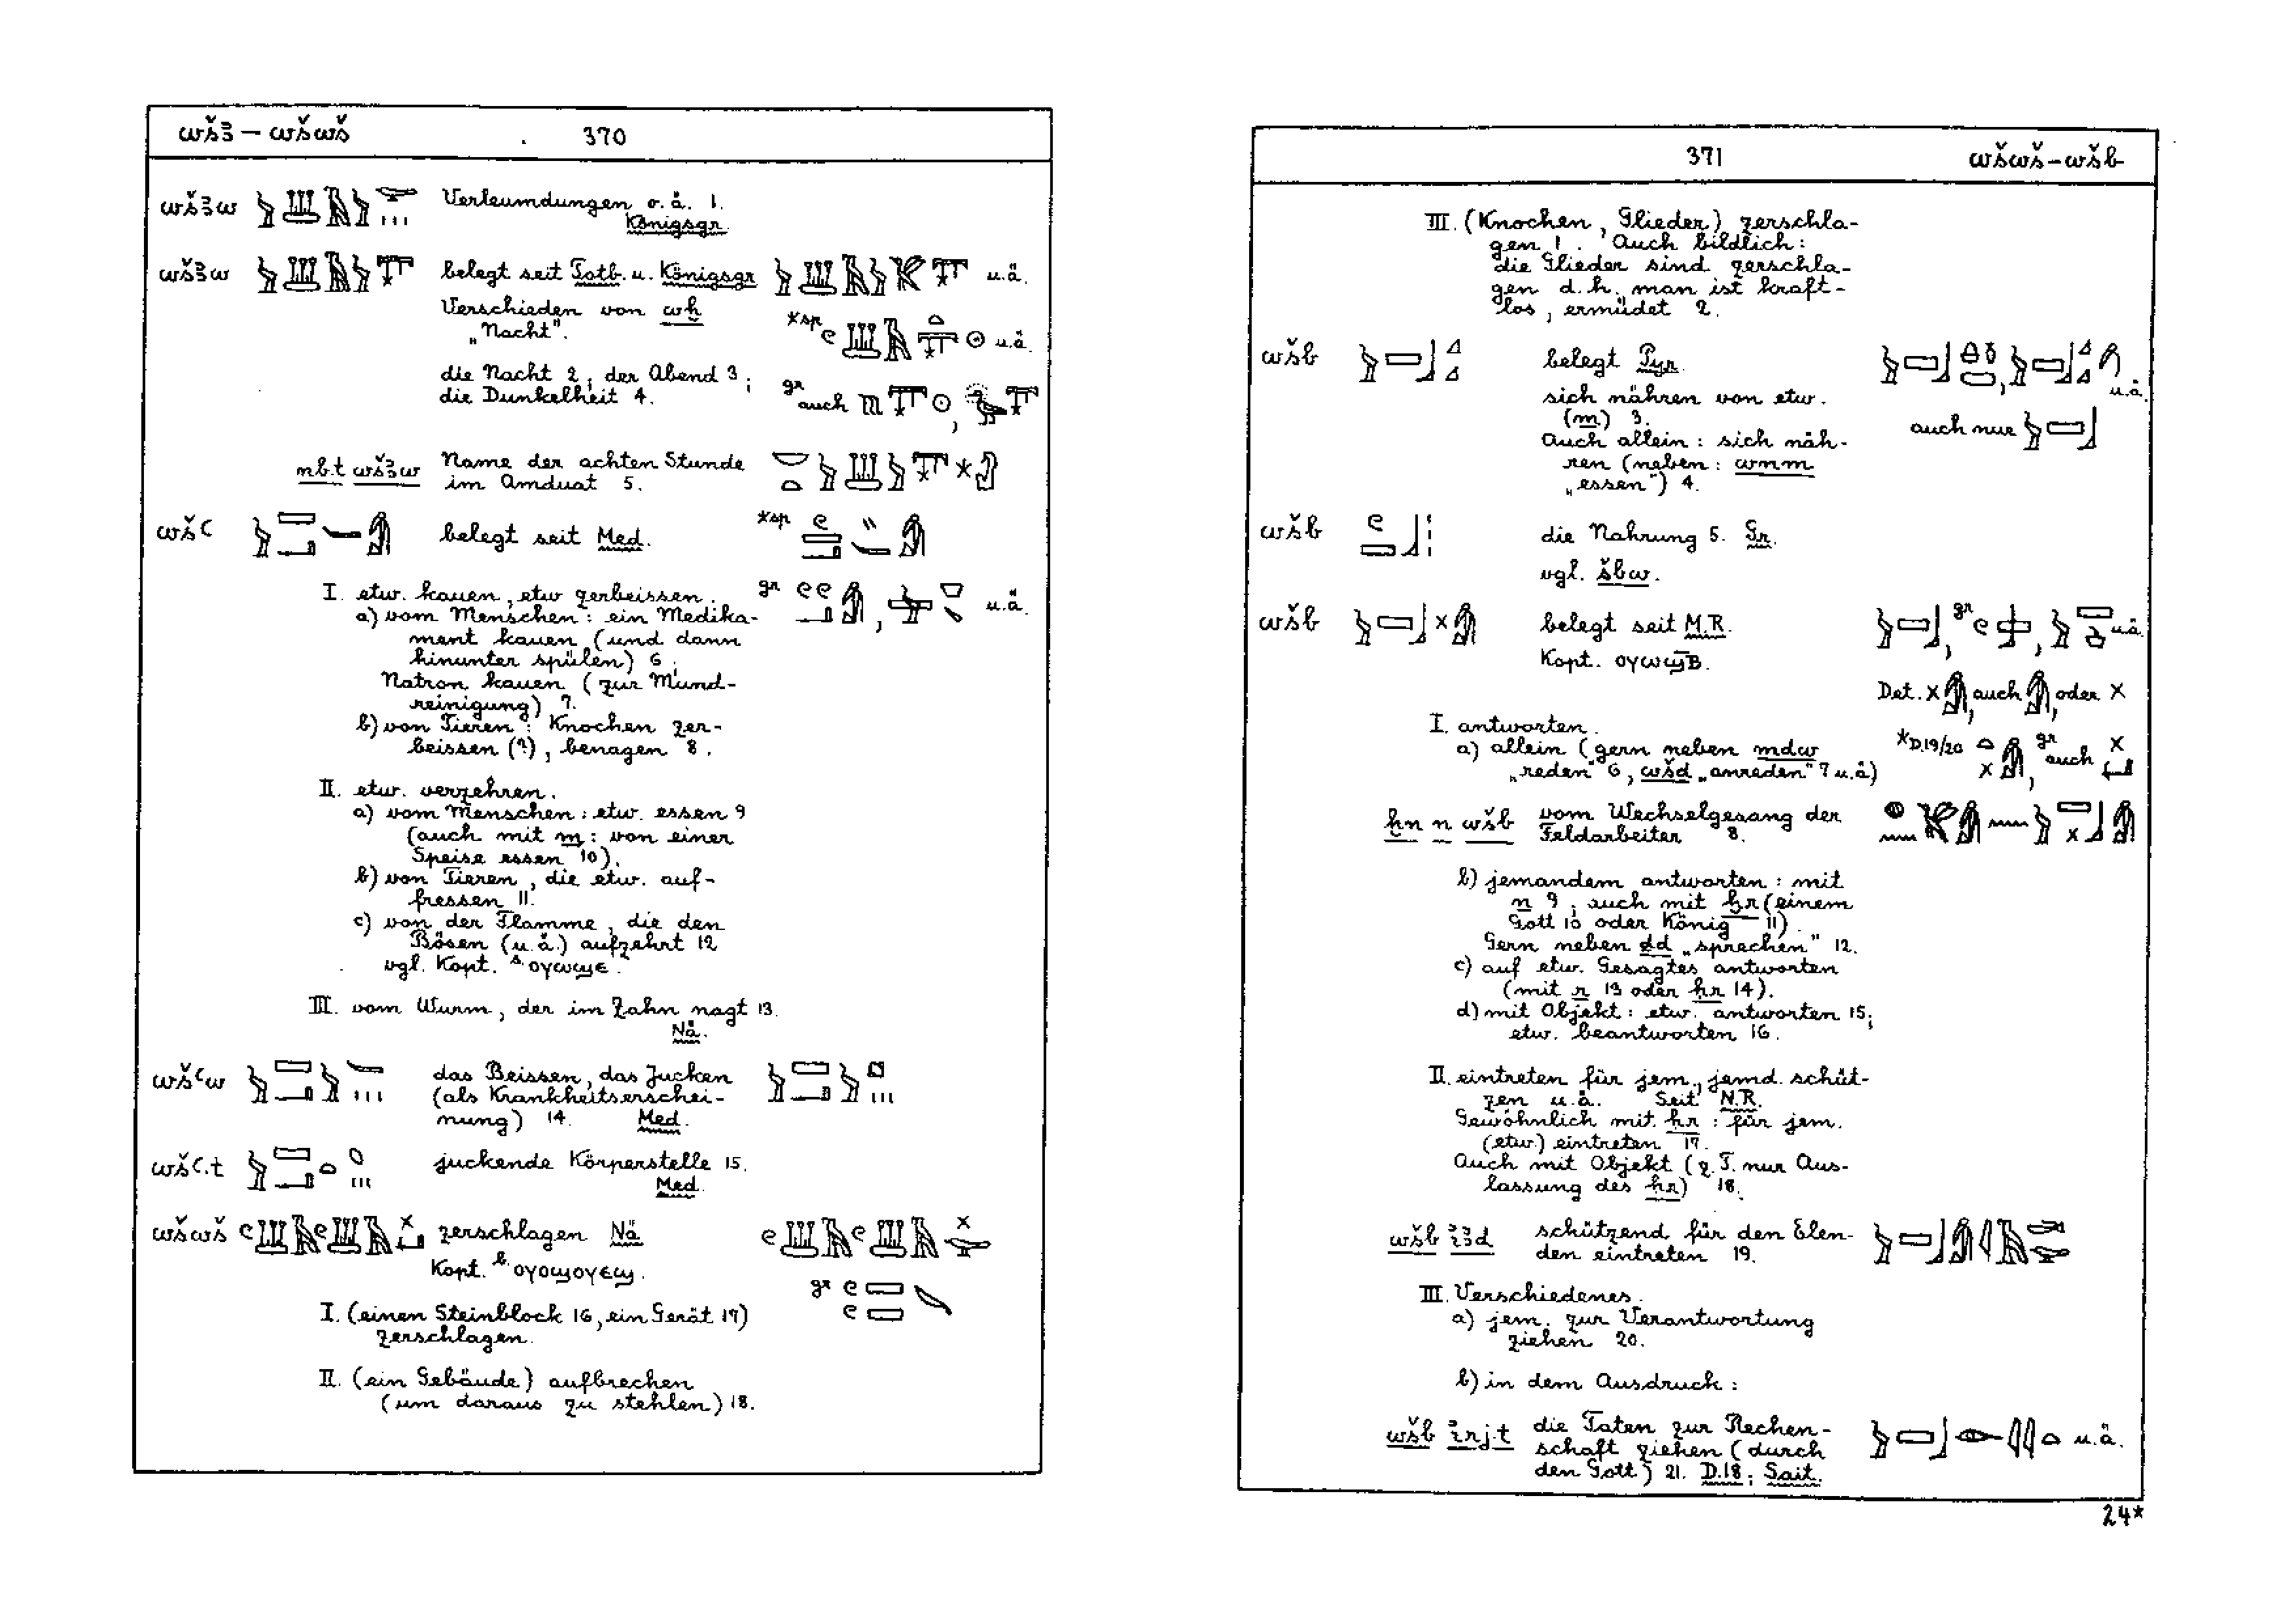 wšꜣ – wšwš 370
wšꜣw Verleumdungen o.ä. 1.
Königsgr.
wšꜣw belegt seit Totb. u. Königsgr u.ä.
Verschieden von wḫ
„Nacht". *sp u.ä.
die Nacht 2, der Abend 3;
die Dunkelheit 4. gr auch ,
nb.t wšꜣw Name der achten Stunde
im Amduat 5.
wšꜥ belegt seit Med. *sp
I. etw. kauen, etw zerbeissen. gr , u.ä.
a) vom Menschen: ein Medika-
ment kauen (und dann
hinunter spülen) 6;
Natron kauen (zur Mund-
reinigung) 7.
b) von Tieren: Knochen zer-
beissen (?), benagen 8.
II. etw. verzehren.
a) vom Menschen: etw. essen 9
(auch mit m: von einer
Speise essen 10).
b) von Tieren, die etw. auf-
fressen 11.
c) von der Flamme, die den
Bösen (u.ä.) aufzehrt 12
vgl. Kopt. ⲟⲩⲱϣⲉ.
III. vom Wurm, der im Zahn nagt 13.
Nä.
wšꜥw das Beissen, das Jucken
(als Krankheitserschei-
nung) 14. Med.
wšꜥ.t juckende Körperstelle 15.
Med.
wšwš zerschlagen Nä
Kopt. b. ⲟⲩⲟϣⲟⲩⲉϣ. gr
I. (einen Steinblock 16, ein Gerät 17)
zerschlagen.
II. (ein Gebäude) aufbrechen
(um daraus zu stehlen) 18.
371 wšwš – wšb
III. (Knochen, Glieder) zerschla-
gen 1. Auch bildlich:
die Glieder sind zerschla-
gen d.h. man ist kraft-
los, ermüdet 2.
wšb belegt Pyr. , u.ä.
sich nähren von etw.
(m) 3. auch nur
Auch allein: sich näh-
ren (neben: wnm
„essen") 4.
wšb die Nahrung 5. Gr.
vgl. šbw.
wšb belegt seit M.R. , gr , u.ä.
Kopt. ⲟⲩⲱϣⲃ̄.
Det. , auch , oder
I. antworten.
a) allein (gern neben mdw *D.19/20 , gr auch
„reden" 6, wšd „anreden" 7 u.ä)
ḫn n wšb vom Wechselgesang der
Feldarbeiter 8.
b) jemandem antworten: mit
n 9; auch mit ḫr (einem
Gott 10 oder König 11).
Gern neben ḏd „sprechen" 12.
c) auf etw. Gesagtes antworten
(mit r 13 oder ḥr 14).
d) mit Objekt: etw. antworten 15;
etw. beantworten 16.
II. eintreten für jem., jemd. schüt-
zen u.ä. Seit N.R.
Gewöhnlich mit ḥr: für jem.
(etw.) eintreten 17.
Auch mit Objekt (z.T. nur Aus-
lassung des ḥr) 18.
wšb iꜣd schützend für den Elen-
den eintreten 19.
III. Verschiedenes.
a) jem. zur Verantwortung
ziehen 20.
b) in dem Ausdruck:
wšb irj.t die Taten zur Rechen- u.ä.
schaft ziehen (durch
den Gott) 21. D.18; Sait.
24*